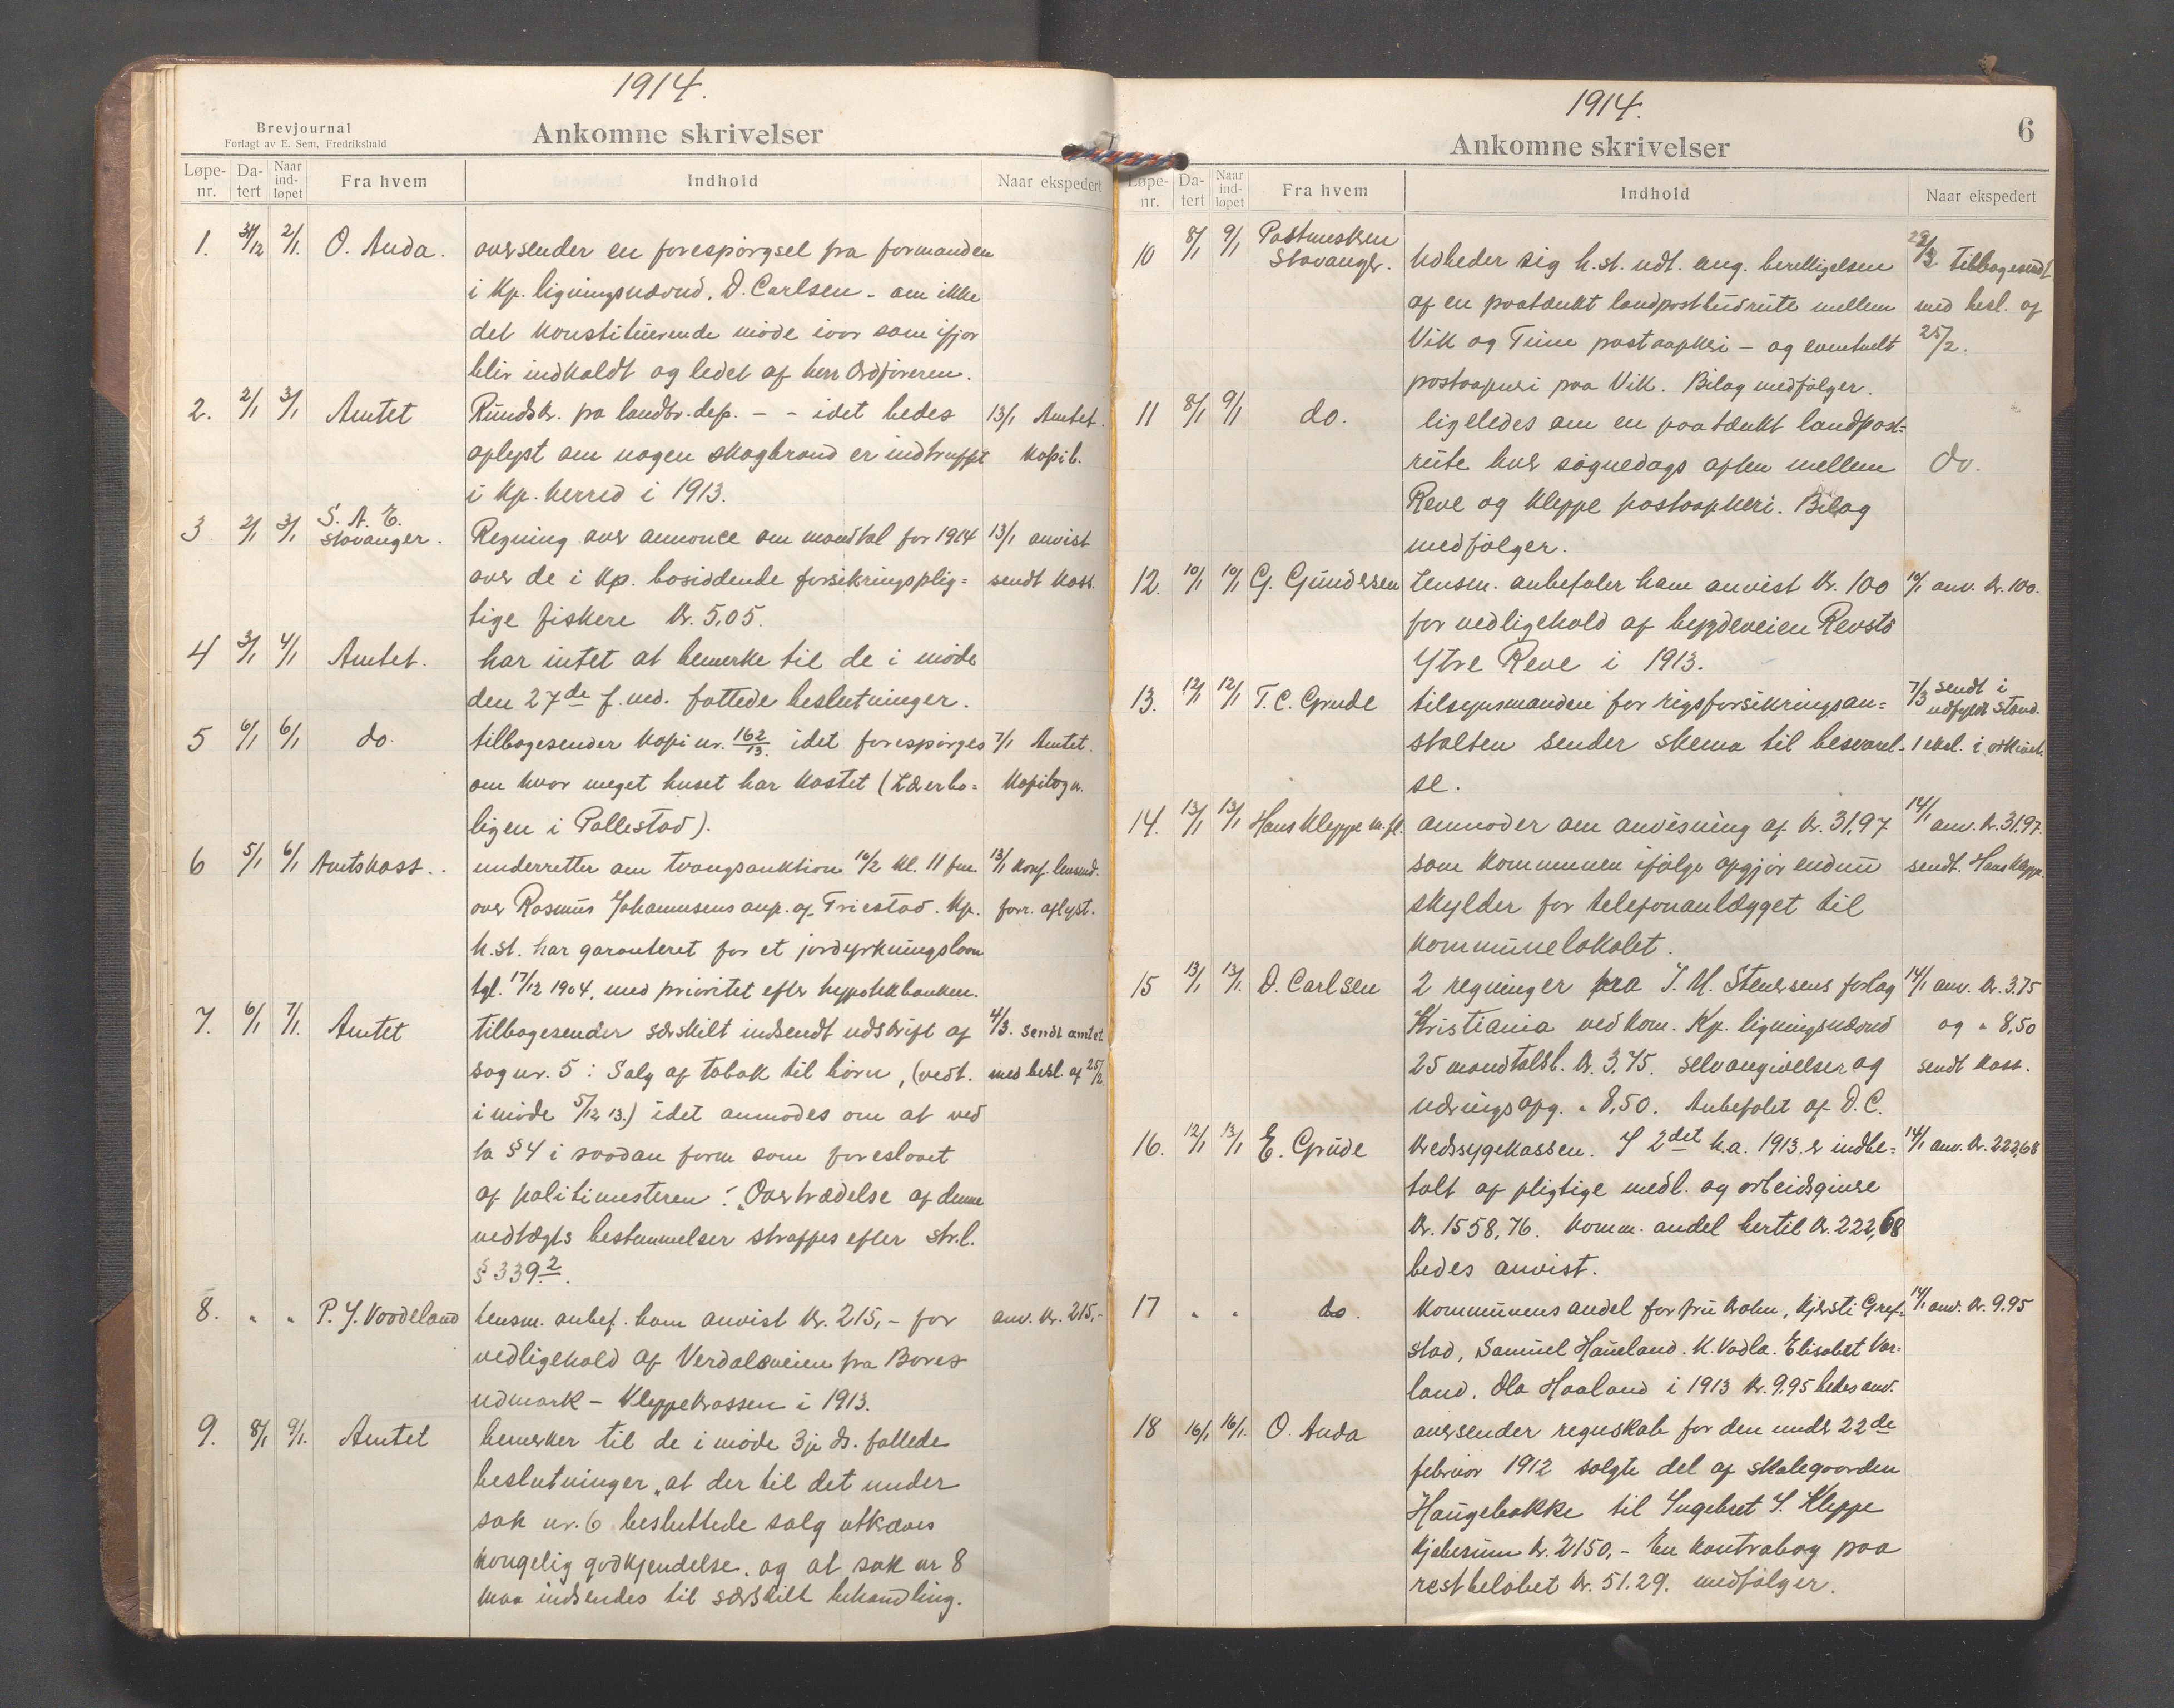 1914.
Brevjournal
Forlagt av E. Sem, Fredrikshald
Ankomne skrivelser
Løpe-nr. Da-tert Naar ind-løpet Fra hvem Indhold Naar ekspedert
1. 31/12 2/1. O. Anda. oversender en forespørgsel fra formanden
i Kp. ligningsnævnd, D. Carlsen - om ikke
det konstituerende møde iaar som ifjor
blir indkaldt og ledet af herr Ordføreren.
2. 2/1 3/1 Amtet Rundskr. fra landbr. dep. - - idet bedes 13/1 Amtet.
oplyst om nogen skogbrand er indtruffet Kopib.
i Kp. herred i 1913.
3 2/1 3/1 S. A. E. Stavanger. Regning over annonce om mandtal for 1914 13/1 anvist
over de i Kp. bosiddende forsikringsplig= sendt kass.
tige fiskere kr. 5,05.
4 3/1 4/1 Amtet. har intet at bemerke til de i møde
den 27de f. md. fattede beslutninger.
5 6/1 6/1 do. tilbagesender kopi nr. 162/13. idet forespørges 7/1 Amtet.
om hvor meget huset har kostet (Lærerbo= Kopibog n.
ligen i Pollestad).
6 5/1 6/1 Amtskass.. underretter om tvangsauktion 10/2 kl. 11 fm. 13/1 konf. lensmd.
over Rasmus Johannesens anp. af Friestad. Kp. forr. aflyst.
h.st. har garanteret for et jordyrkningslaan
tgl. 17/12 1904, med prioritet efter hypotekbanken.
7. 6/1 7/1. Amtet tilbagesender særskilt indsendt udskrift af 4/3. sendt amtet
sag nr. 5: Salg af tobak til børn, (vedt. med besl. af 25/2
i møde 5/12 13.) idet anmodes om at ved
ta § 4 i saadan form som foreslaaet
af politimesteren: "Overtrædelse af denne
vedtægts bestemmelser straffes efter str.l.
§ 339.2.
8. " " P. J. Voodeland Lensm. anbef. ham anvist kr. 215,- for anv. kr. 215,-
vedligehold af Verdalsveien fra Bores
udmark - Kleppekrossen i 1913.
9. 8/1 9/1. Amtet bemerker til de i møde 3je ds. fattede
beslutninger "at der til det under
sak nr. 6 besluttede salg utkræves
kongelig godkjendelse, og at sak nr 8
maa indsendes til særskilt behandling.
1914.
6
Ankomne skrivelser
Løpe-nr. Da-tert Naar ind-løpet Fra hvem Indhold Naar ekspedert
10 8/1 9/1 Postmesteren Stavanger. Udbeder sig h.st. udt. ang. berettigelsen 28/2 tilbagesendt
af en paatænkt landpostbudrute mellem med besl. af
Vik og Time postaapneri - og eventuelt 25/2.
postaapneri paa Vik. Bilag medfølger.
11 8/1 9/1 do. ligeledes om en paatænkt landpost=
rute hver søgnedags aften mellem do.
Reve og Kleppe postaapneri. Bilag
medfølger.
12. 10/1 10/1 G. Gundersen Lensm. anbefaler ham anvist kr. 100 10/1 anv. kr. 100.
for vedligehold af bygdeveien Revstø
Ytre Reve i 1913.
13. 12/1 12/1 T. C. Grude tilsynsmanden for rigsforsikringsan= 7/3 sendt i udfyldt stand.
stalten sender skema til besvarel- 1 eksl. i arkivet.
se.
14. 13/1 13/1 Hans Kleppe m.fl. anmoder om anvisning af kr. 31,97 14/1 anv. kr. 31,97.
som kommunen ifølge opgjør endnu sendt. Hans Klepp.
skylder for telefonanlægget til
kommunelokalet.
15 13/1 13/1. D. Carlsen 2 regninger fra J. M. Stenersens forlag 14/1 anv. kr. 3.75
Kristiania vedkom. Kp. ligningsnævnd og " 8,50
25 mandtalsl. kr. 3,75. selvangivelser og sendt kass.
næringsopg. " 8,50. Anbefalet af D.C.
16. 12/1 13/1 E. Grude Kredssygekassen. I 2det h.a. 1913 er indbe= 14/1 anv. kr. 222,68
talt af pligtige medl. og arbeidsgivere
kr. 1558,76. komm. andel hertil kr. 222,68
bedes anvist.
17 " " do. Kommunens andel for fru Krohn, Kjersti Gref= 14/1 anv. kr. 9.95
stad, Samuel Haueland. K. Vadla. Elisabet Var=
land. Ola Haaland i 1913 kr. 9,95 bedes anv.
18 16/1 16/1. O. Anda oversender regnskab for den under 22de
februar 1912 solgte del af skolegaarden
Haugebakke til Ingebret S. Kleppe
Kjøbesum kr. 2150,- En kontrabog paa
restbeløbet kr. 51.29. medfølger.